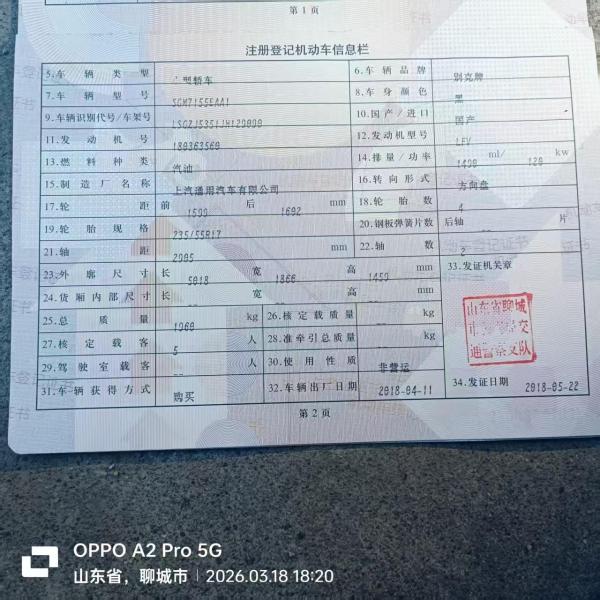 第1页
注册登记机动车信息栏
5.车辆类型 型轿车 6.车辆品牌 别克牌
7.车辆型号 SGM7155EAA1 8.车身颜色 黑
9.车辆识别代号/车架号 10.国产/进口 国产
11.发动机号 180363560 12.发动机型号 LFV
13.燃料种类 汽油 14.排量/功率 ml/ kw
15.制造厂名称 上汽通用汽车有限公司 16.转向形式 方向盘
17.轮距 前 后 mm 18.轮胎数 4
19.轮胎规格 235/55R17 20.钢板弹簧片数 后轴 片
21.轴距 mm 22.轴数 2
23.外廓尺寸 长 宽 高 mm 33.发证机关章
24.货厢内部尺寸 长 宽 高 mm
25.总质量 kg 26.核定载质量 kg
27.核定载客 5 人 28.准牵引总质量 kg
29.驾驶室载客 人 30.使用性质 非营运
31.车辆获得方式 购买 32.车辆出厂日期 2018-04-11 34.发证日期 2018-05-22
山东省聊城
通警察支队
第2页
OPPO A2 Pro 5G
山东省，聊城市 | 2026.03.18 18:20